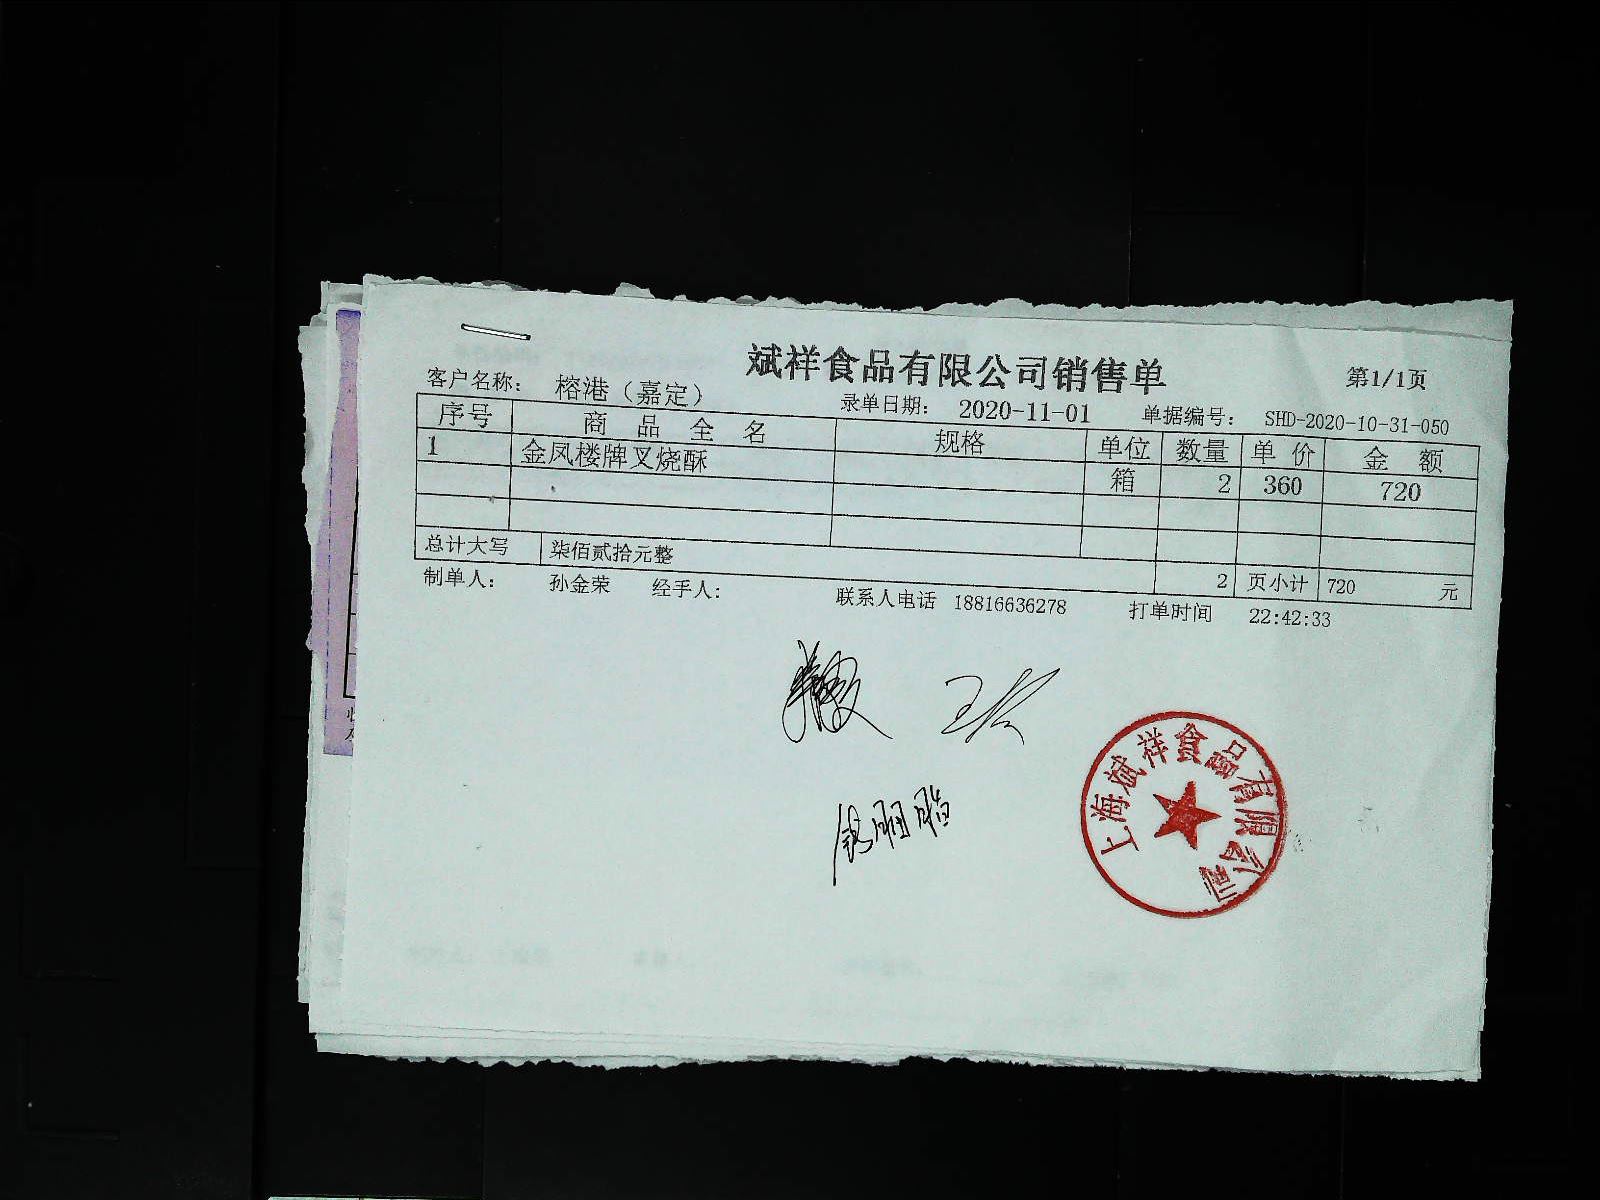 斌祥食品有限公司销售单
第1/1页
客户名称： 榕港（嘉定） 录单日期： 2020-11-01 单据编号： SHD-2020-10-31-050
序号 商品全名 规格 单位 数量 单价 金额
1 金凤楼牌叉烧酥 箱 2 360 720
总计大写 柒佰贰拾元整 2 页小计 720 元
制单人： 孙金荣 经手人： 联系人电话 18816636278 打单时间 22:42:33
上海斌祥食品有限公司